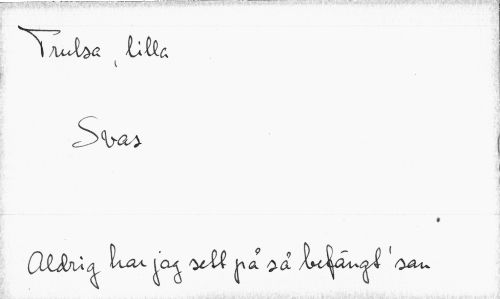 Trulsa, lilla
Svas
Aldrig har jag sett på så befängt 'san